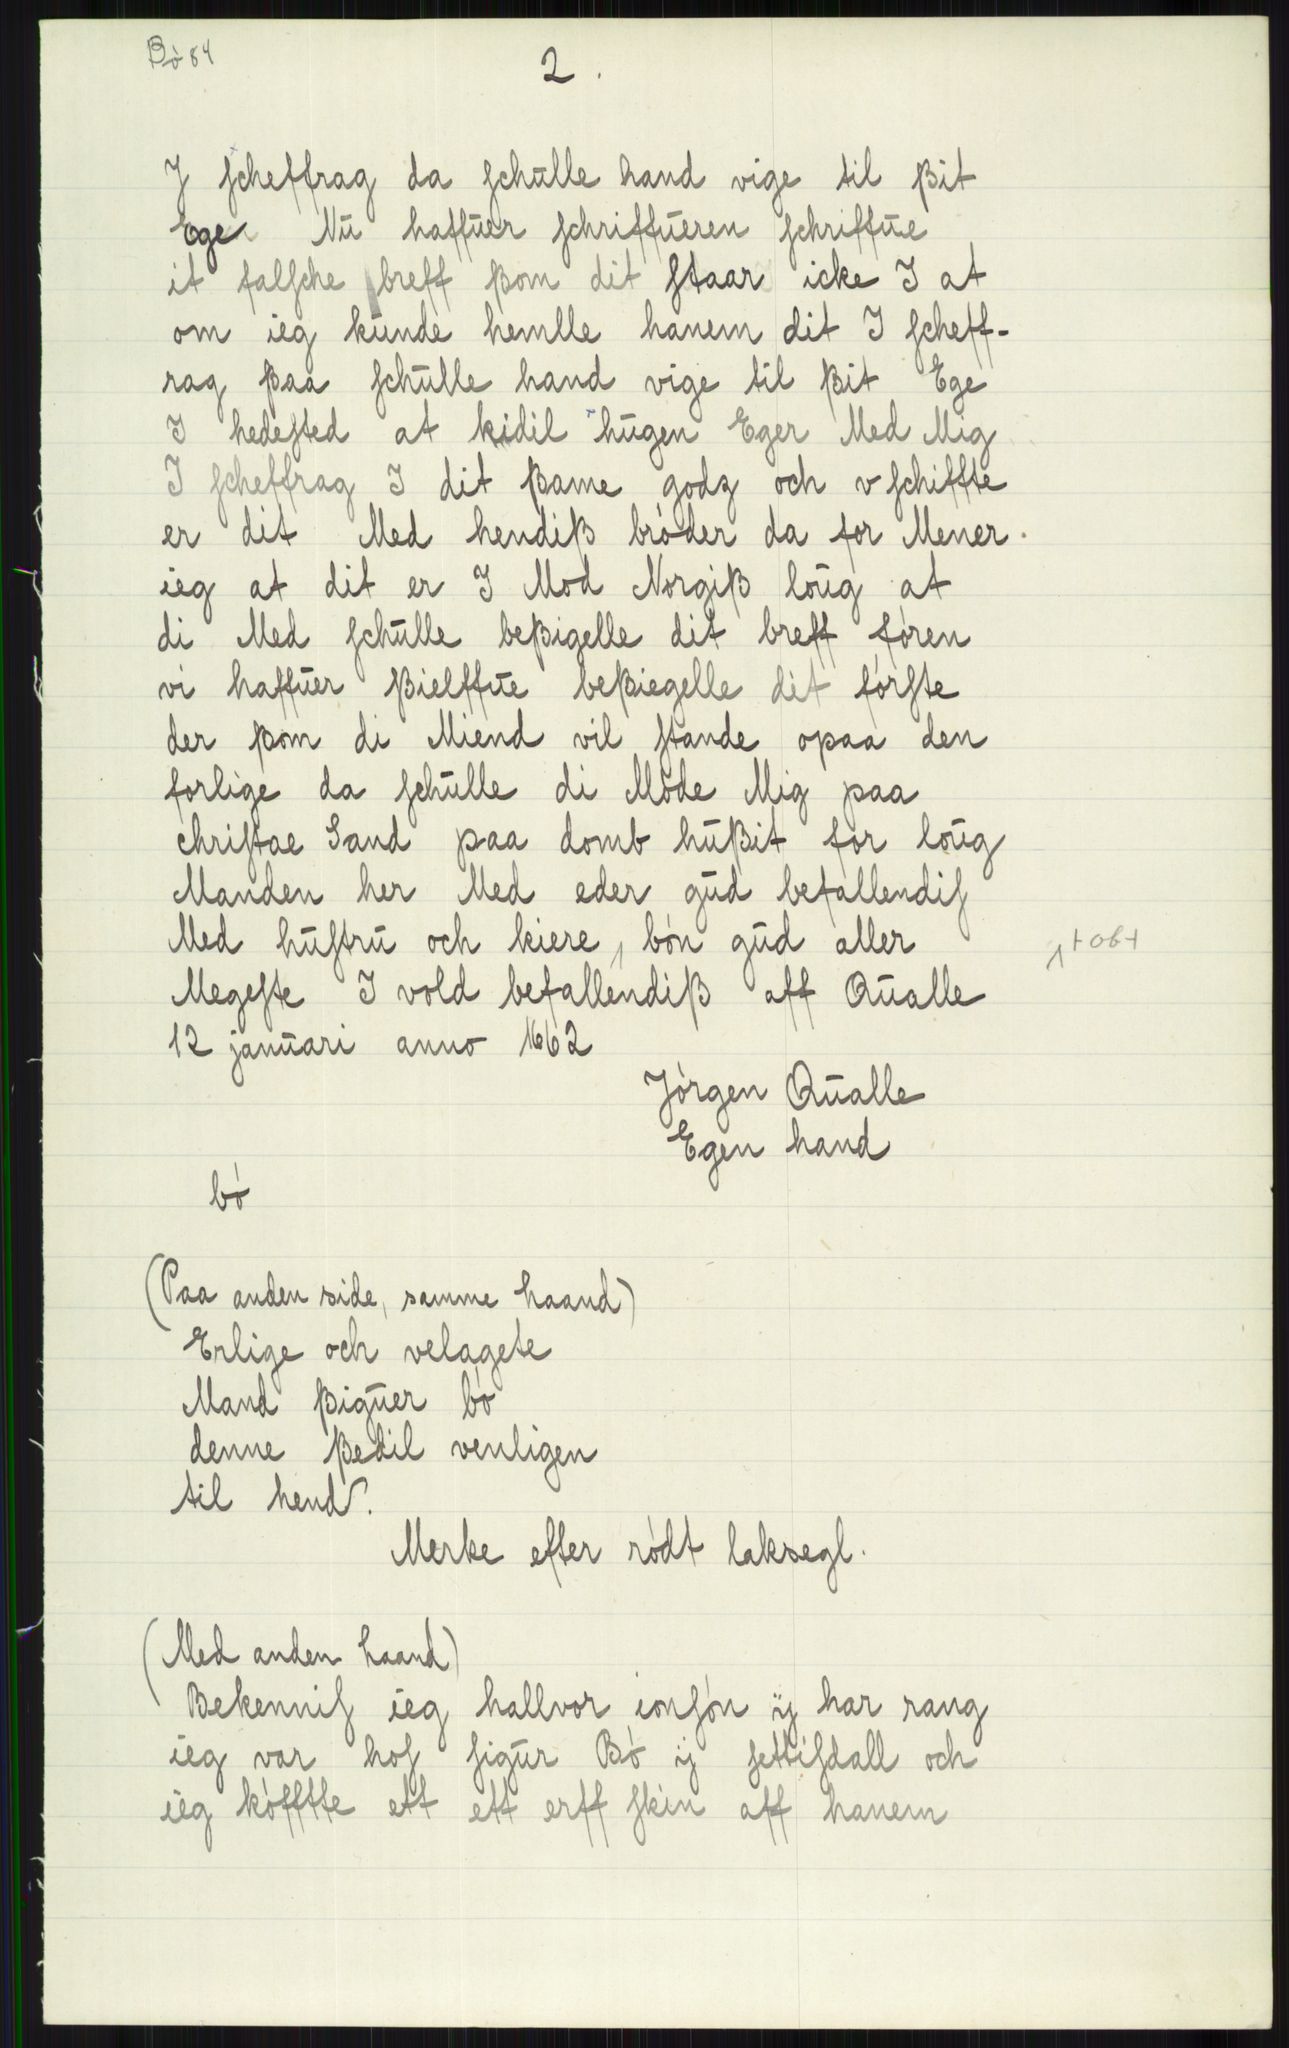 Bò 84
2.
J scheffrag da schúlle hand vige til ßit
Ege Nú haffúer schriffúeren schriffúe
it falsche breff ßom dit staar icke J at
om ieg kúnde hemlle hanem dit J scheff-
rag ßaa schúlle hand vige til ßit Ege
J hedested at kidil húgen Eger Med Mig
J scheffrag J dit ßame godz och v schiffte
er dit Med hendiß bróder da for Mener.
ieg at dit er J Mod Norgiß loúg at
di Med schúlle beßigelle dit breff fóren
vi haffúer ßielffúe beßiegelle dit fórste
der ßom di Miend vil stande opaa den
forlige da schúlle di Móde Mig paa
christae Sand paa domb húßit for loúg
Manden her Med eder gúd befallendis
Med hústrú och kiere, bón gúd aller
Megeste J vold befallendiß aff Qúalle
12 janúari anno 1662
Jórgen Qúalle
Egen hand
bó
(Paa anden side, samme haand)
Erlige och velagete
Mand ßigúer bó
denne ßedil venligen
til hend.
Merke efter rødt laksegl.
(Med anden haand)
Bekennis ieg hallvor ionsón ij har rang
ieg var hos sigúr Bó ij settisdall och
ieg kófftte ett ett erff skin aff hanem